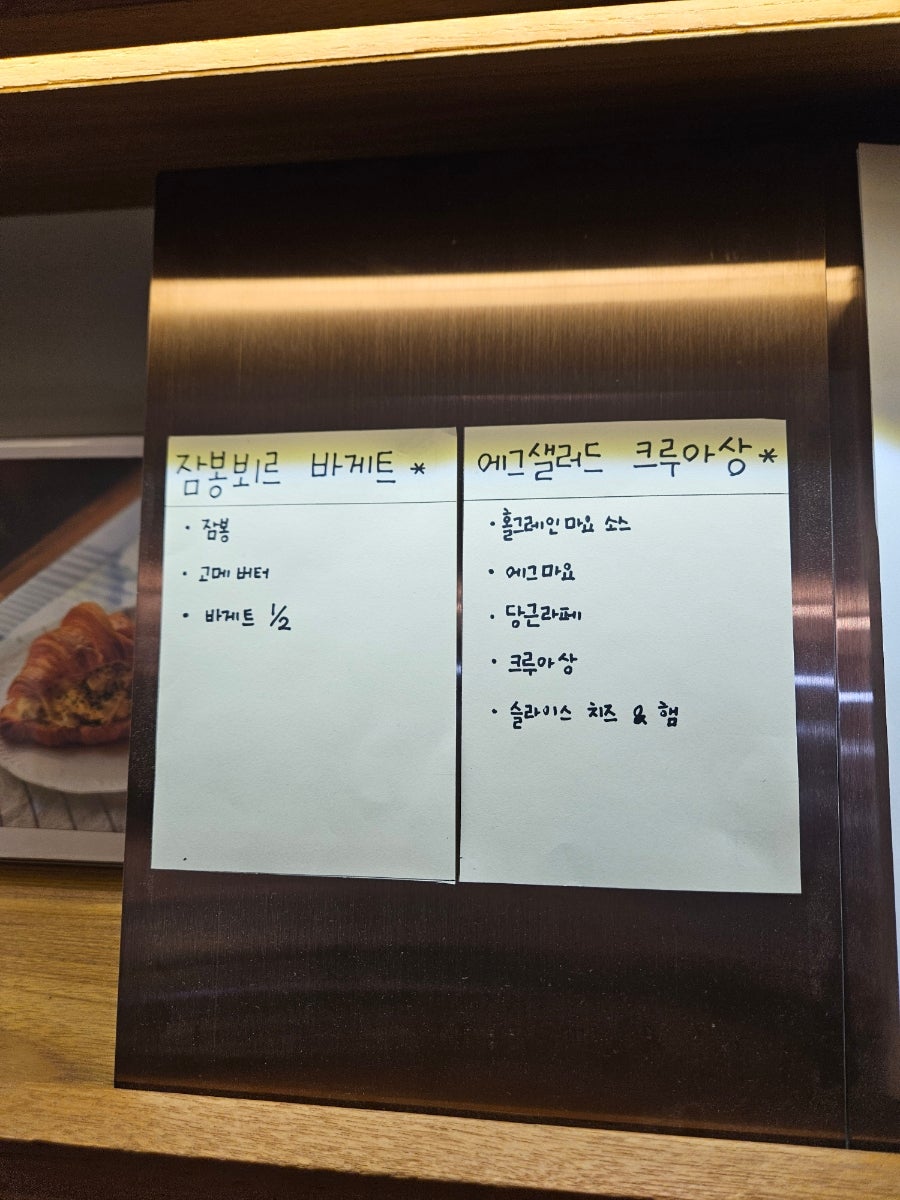 잠봉뵈르 바게트 *
• 잠봉
• 고메 버터
• 바게트 1/2
에그샐러드 크루아상 *
• 홀그레인마요 소스
• 에그마요
• 당근라페
• 크루아상
• 슬라이스 치즈 & 햄